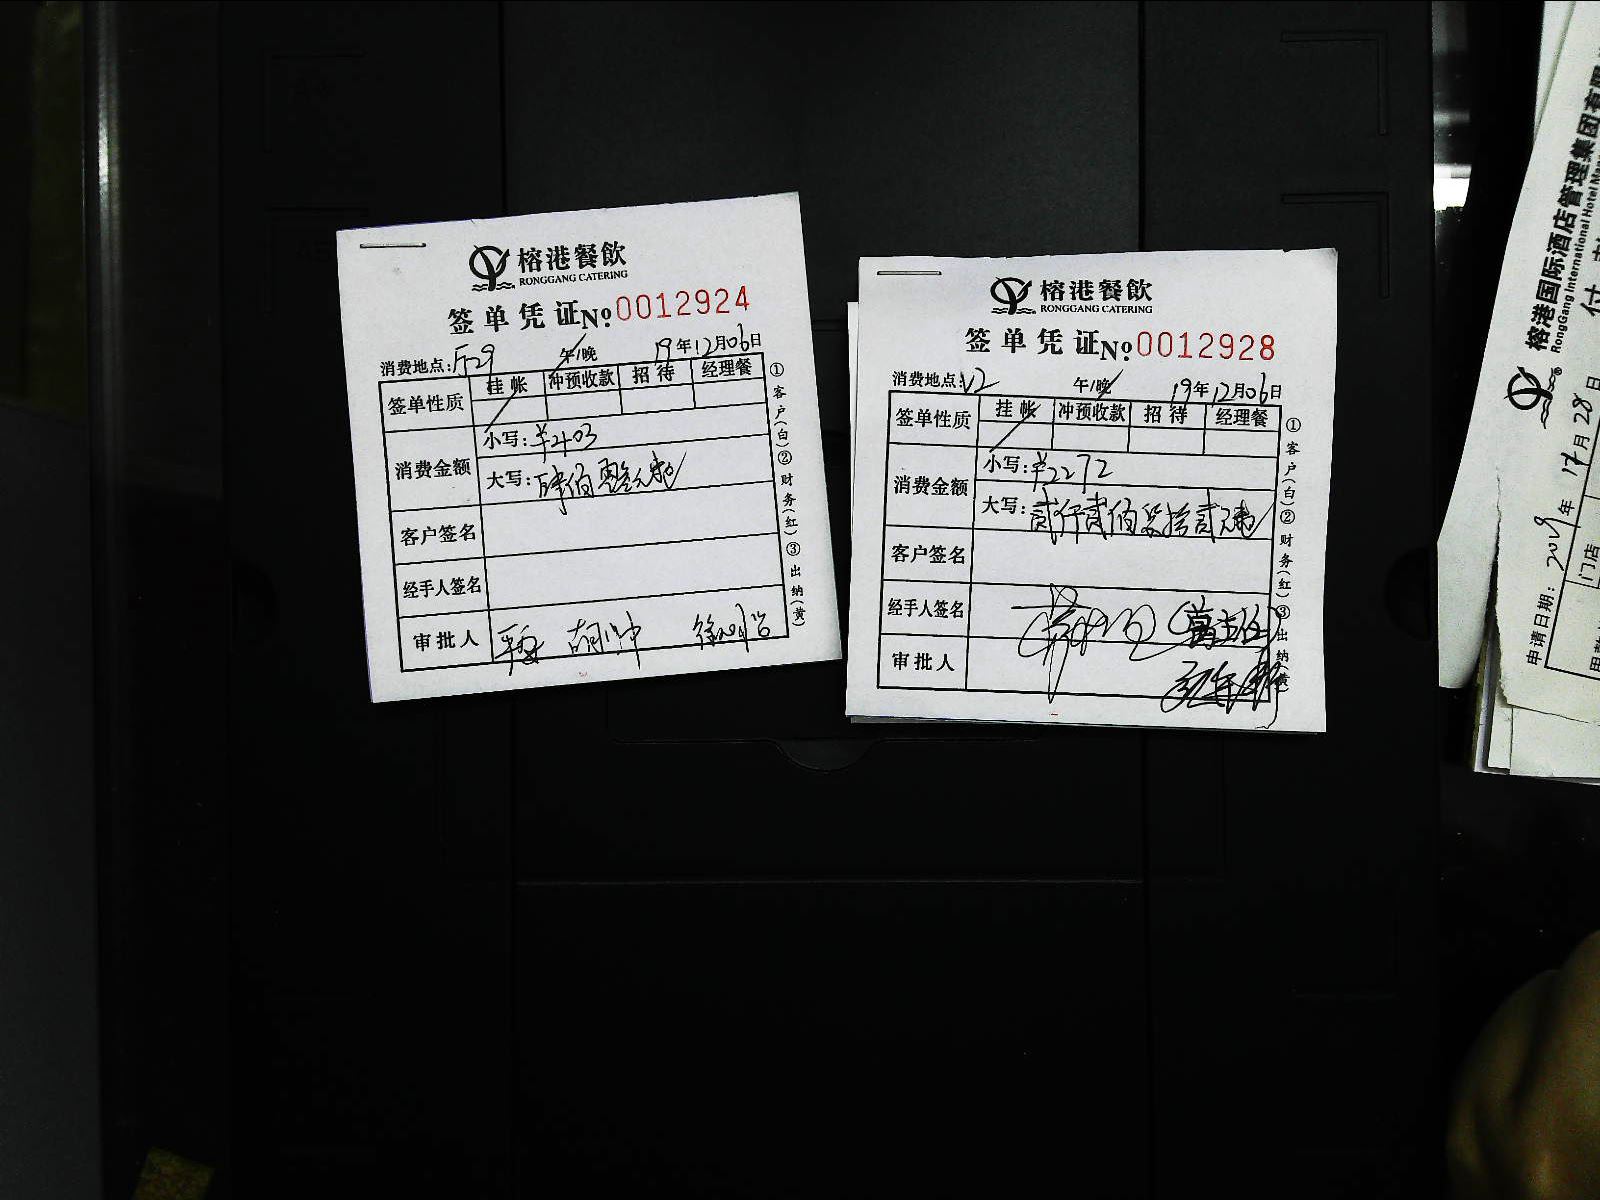 榕港餐飲
RONGGANG CATERING
签单凭证 № 0012924
消费地点: F29 午/晚 19年12月06日
签单性质 挂帐 冲预收款 招待 经理餐
消费金额 小写: ¥403
大写: 肆佰零叁元整
客户签名
经手人签名
审批人
①客户(白)②财务(红)③出纳(黄)
榕港餐飲
RONGGANG CATERING
签单凭证 № 0012928
消费地点: V2 午/晚 19年12月06日
签单性质 挂帐 冲预收款 招待 经理餐
消费金额 小写: ¥2272
大写: 贰仟贰佰柒拾贰元整
客户签名
经手人签名
审批人
①客户(白)②财务(红)③出纳(黄)
榕港国际酒店管理集团有限
RongGang International Hotel Man
付
申请日期: 2019年12月28日
门店